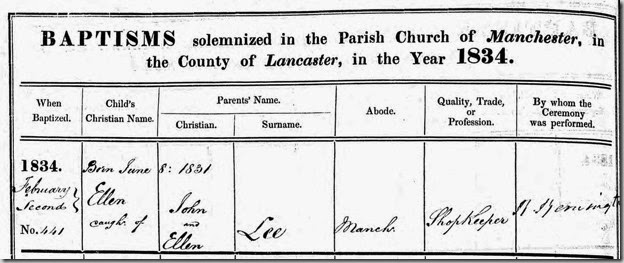 BAPTISMS solemnized in the Parish Church of Manchester, in
the County of Lancaster, in the Year 1834.
When Baptized.
Child's Christian Name.
Parents' Name.
Christian.
Surname.
Abode.
Quality, Trade, or Profession.
By whom the Ceremony was performed.
1834.
February
Second
No. 441
Born June 8: 1831
Ellen
daugh. of
John
and
Ellen
Lee
Manch.
Shopkeeper